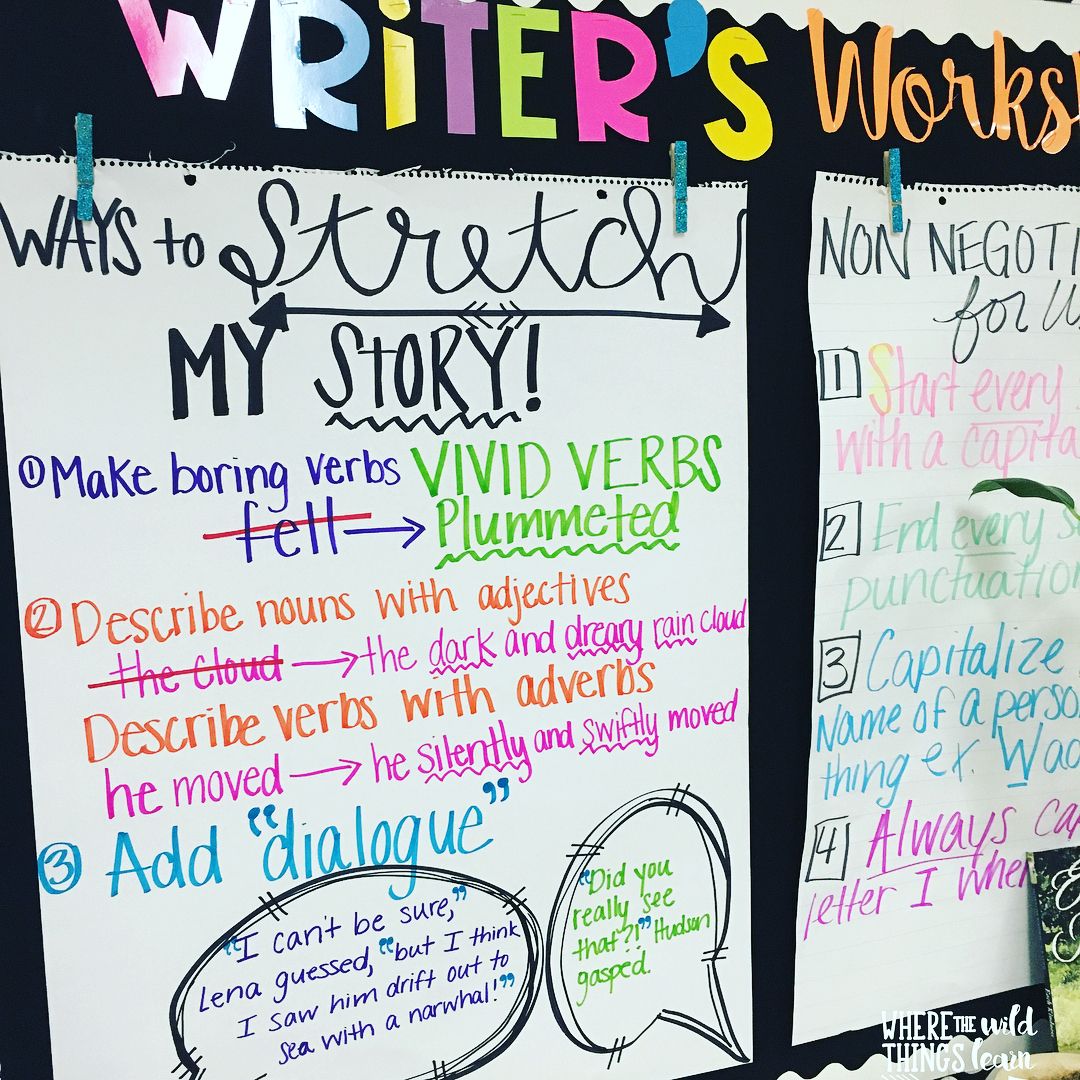 WRiTER'S Works
WAYS to Stretch
MY StORY!
① Make boring verbs VIVID VERBS
fell → Plummeted
② Describe nouns with adjectives
the cloud → the dark and dreary rain cloud
Describe verbs with adverbs
he moved → he silently and swiftly moved
③ Add "dialogue"
"I can't be sure,"
Lena guessed, "but I think
I saw him drift out to
sea with a narwhal!"
"Did you
really see
that?!" Hudson
gasped.
NON NEGOTI
for
1 Start every
with a capita
2 End every
punctuation
3 Capitalize
Name of a perso
thing ex. Wa
4 Always ca
letter I when
WHERE THE wild
THINGS learn